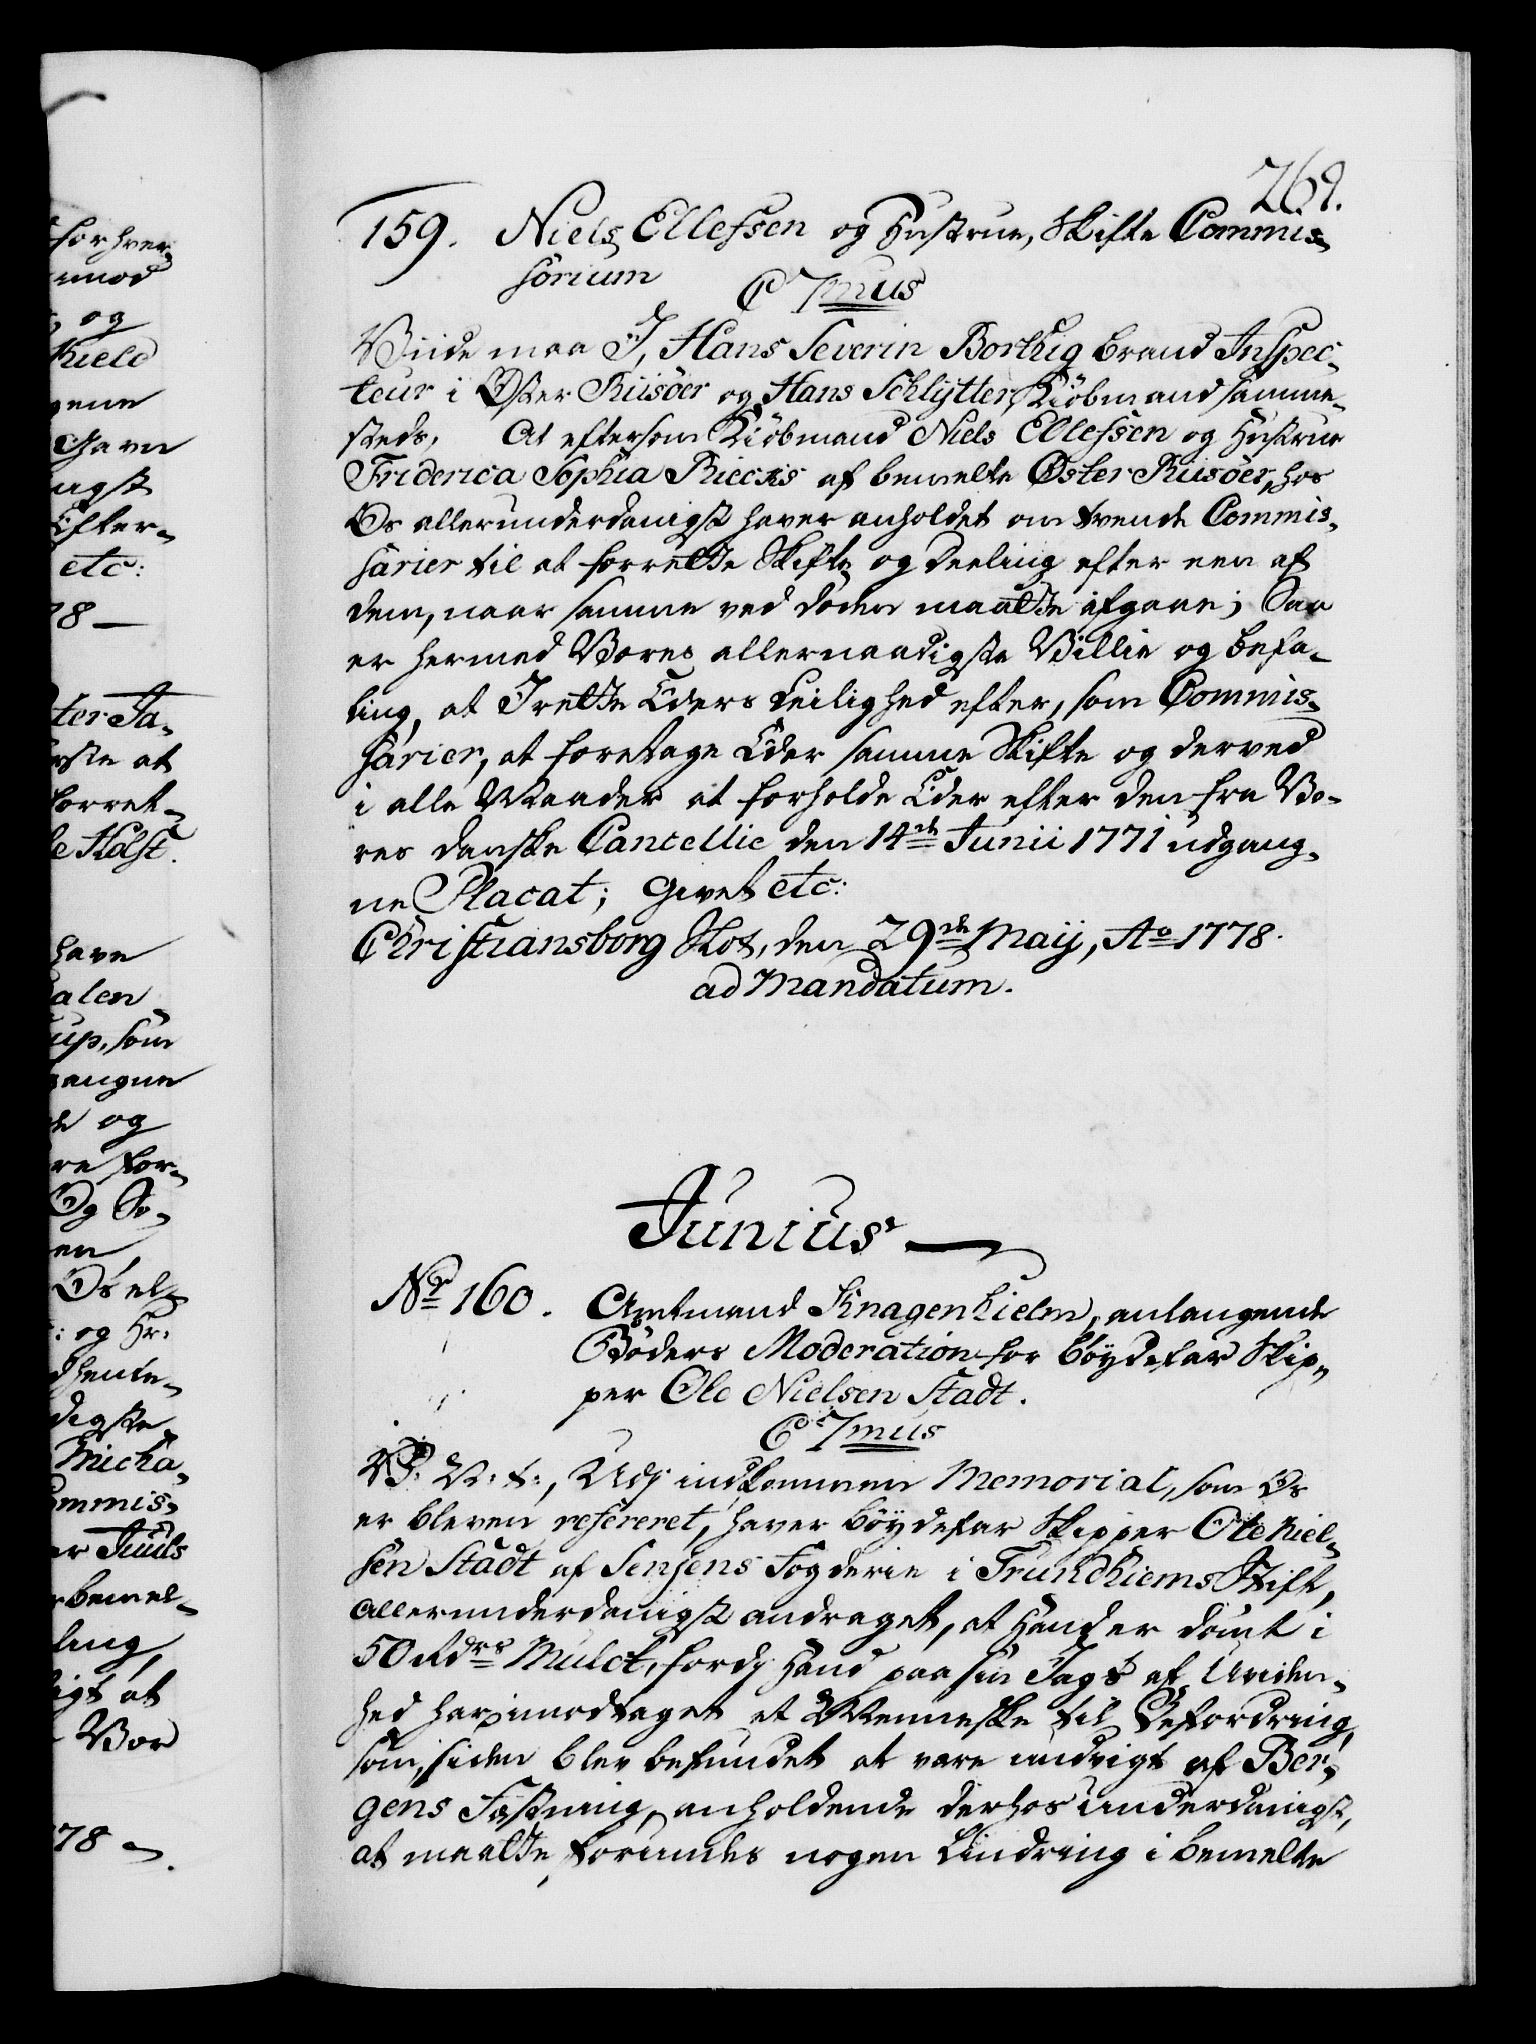 269.
159. Niels Ellefsen og Hustrue, Skifte Commis-
sorium
C 7mus
Viide maa I, Hans Severin Borthig brand Inspec-
teur i Øster Riisöer og Hans Schlytter, Kiöbmand samme-
steds, At eftersom Kiöbmand Niels Ellefsen og Hustrue
Friderica Sophia Riecks af bemelte Øster Riisöer, hos
Os allerunderdanigst haver anholdet om tvende Commis-
sarier til at forrette Skifte og deeling efter een af
dem, naar samme ved döden maatte afgaae; Saa
er hermed Vores allernaadigste Villie og befa-
ling, at I rette Eders Leilighed efter, som Commis-
sarier, at foretage Eder samme Skifte og derved
i alle Maader at forholde Eder efter den fra Vo-
res danske Cancellie den 14de Junii 1771 udgang-
ne Placat; Givet etc:
Christiansborg Slot, den 29de Maij, Ao 1778.
ad Mandatum.
Junius
No 160. Amtmand Knagenhielm, anlangende
Böders Moderation for böydefar Skip-
per Ole Nielsen Stadt.
C 7mus
V: V: t:, Udj indkommen Memorial, som Os
er bleven refereret, haver böydefar Skipper Ole Niel-
sen Stadt af Senjens Fogderie i Trundhiems Stift,
allerunderdanigst andraget, at Hand er dömt i
50 Rdrs Mulct, fordj Hand paa sin Jagt af Uviden-
hed har imodtaget et Menneske til Befordring,
som siden blev befundet at være undvigt af Ber-
gens Fæstning, anholdende derhos underdanigst,
at maatte forundes nogen Lindring i bemelte